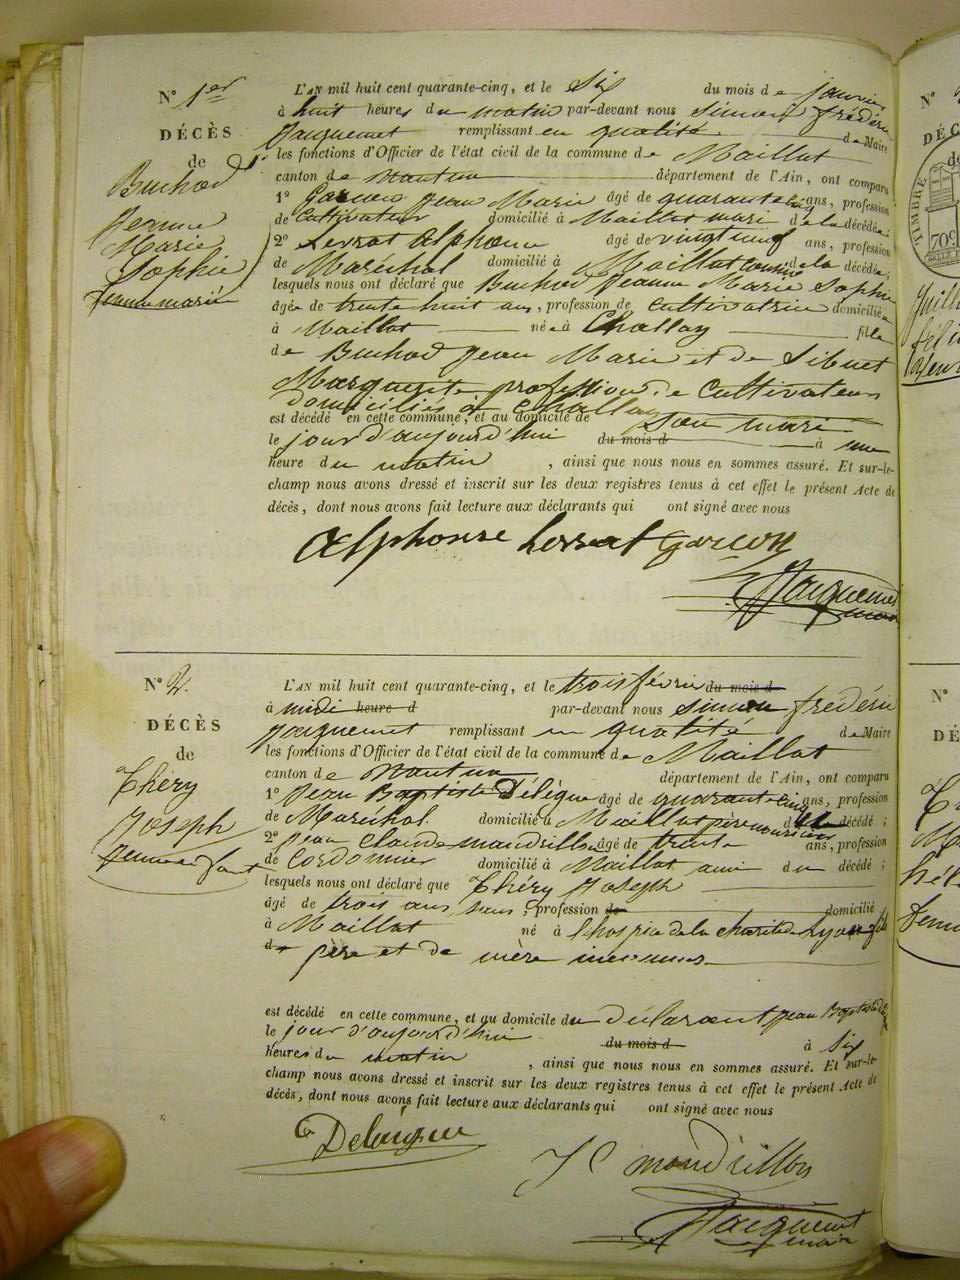 N° 1er
DÉCÈS
de
Buchod
Jeanne
Marie
Sophie
L'AN mil huit cent quarante-cinq, et le Six du mois de janvier
à huit heures du matin par-devant nous Simon frédéric
Jacquemet remplissant en qualité de Maire
les fonctions d'Officier de l'état civil de la commune de Maillat
canton de nantua département de l'Ain, ont comparu
1° Jean Marie âgé de quarante cinq ans, profession
de Cultivateur domicilié à Maillat mari de la décédée;
2° Lerrat Alphonse âgé de vingt neuf ans, profession
de Maréchal domicilié à Maillat cousin de la décédée;
lesquels nous ont déclaré que Buchod Jeanne Marie Sophie
âgée de trente huit ans, profession de Cultivatrice domiciliée
à Maillat née à Challey fille
de Buchod Jean Marie et de Sibuet
Marguerite profession de Cultivateurs
domiciliés à Challey
est décédé en cette commune, et au domicile de Son mari
le jour d'aujourd'hui du mois d à une
heure du matin, ainsi que nous nous en sommes assuré. Et sur-le-
champ nous avons dressé et inscrit sur les deux registres tenus à cet effet le présent Acte de
décès, dont nous avons fait lecture aux déclarants qui ont signé avec nous
Alphonse Lerrat
Jacquemet
maire
N° 2.
DÉCÈS
de
Théry
Joseph
L'AN mil huit cent quarante-cinq, et le trois février du mois d
à midi heure d par-devant nous Simon frédéric
Jacquemet remplissant en qualité de Maire
les fonctions d'Officier de l'état civil de la commune de Maillat
canton de nantua département de l'Ain, ont comparu
1° Jean Baptiste âgé de quarante cinq ans, profession
de Maréchal domicilié à Maillat père nourricier décédé;
2° Jean Claude mandrillon âgé de trente ans, profession
de Cordonnier domicilié à Maillat ami du décédé;
lesquels nous ont déclaré que Théry Joseph
âgé de trois ans sans profession de domicilié
à Maillat né à l'hospice de la charité de Lyon fils
de père et de mère inconnus
est décédé en cette commune, et au domicile du déclarant Jean Baptiste
le jour d'aujourd'hui du mois d à Six
heures du matin, ainsi que nous nous en sommes assuré. Et sur-le-
champ nous avons dressé et inscrit sur les deux registres tenus à cet effet le présent Acte de
décès, dont nous avons fait lecture aux déclarants qui ont signé avec nous
J C mandrillon
Jacquemet
maire
N°
TIMBRE
70c
N°